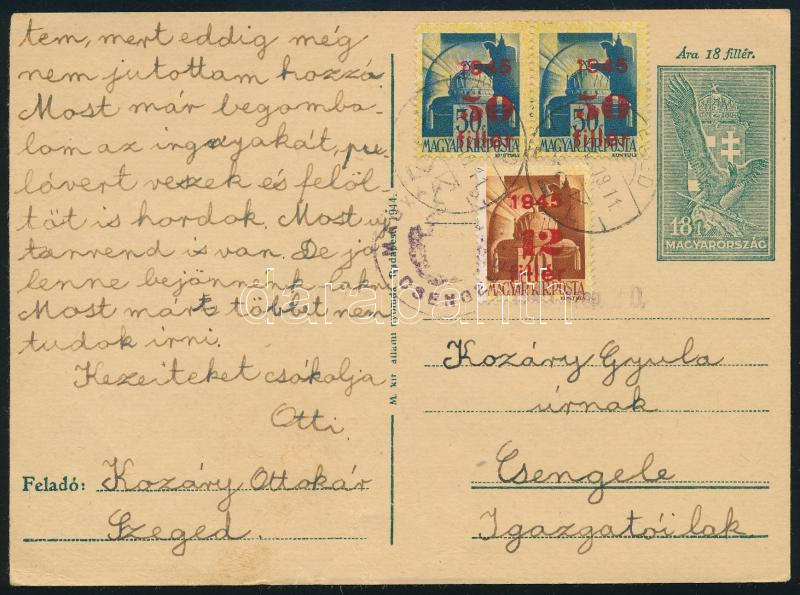 tem, mert eddig még
nem jutottam hozzá.
Most már begomba-
lom az irgayakát, pu-
lóvert veszek és felöl-
töt is hordok. Most uj
tanrend is van. De jó
lenne bejönnenk lakni
Most már többet nem
tudok irni.
Kezeiteket csókolja
Otti.
Feladó: Kozáry Ottokár
Szeged.
M. kir. állami nyomda Budapest, 1944.
Ára 18 fillér.
18 f
MAGYARORSZÁG
1945
50
fillér
MAGYAR KIR. POSTA
1945
50
fillér
MAGYAR KIR. POSTA
1945
12
fillér
MAGYAR KIR. POSTA
darabanth
Kozáry Gyula
úrnak
Csengele
Igazgatói lak